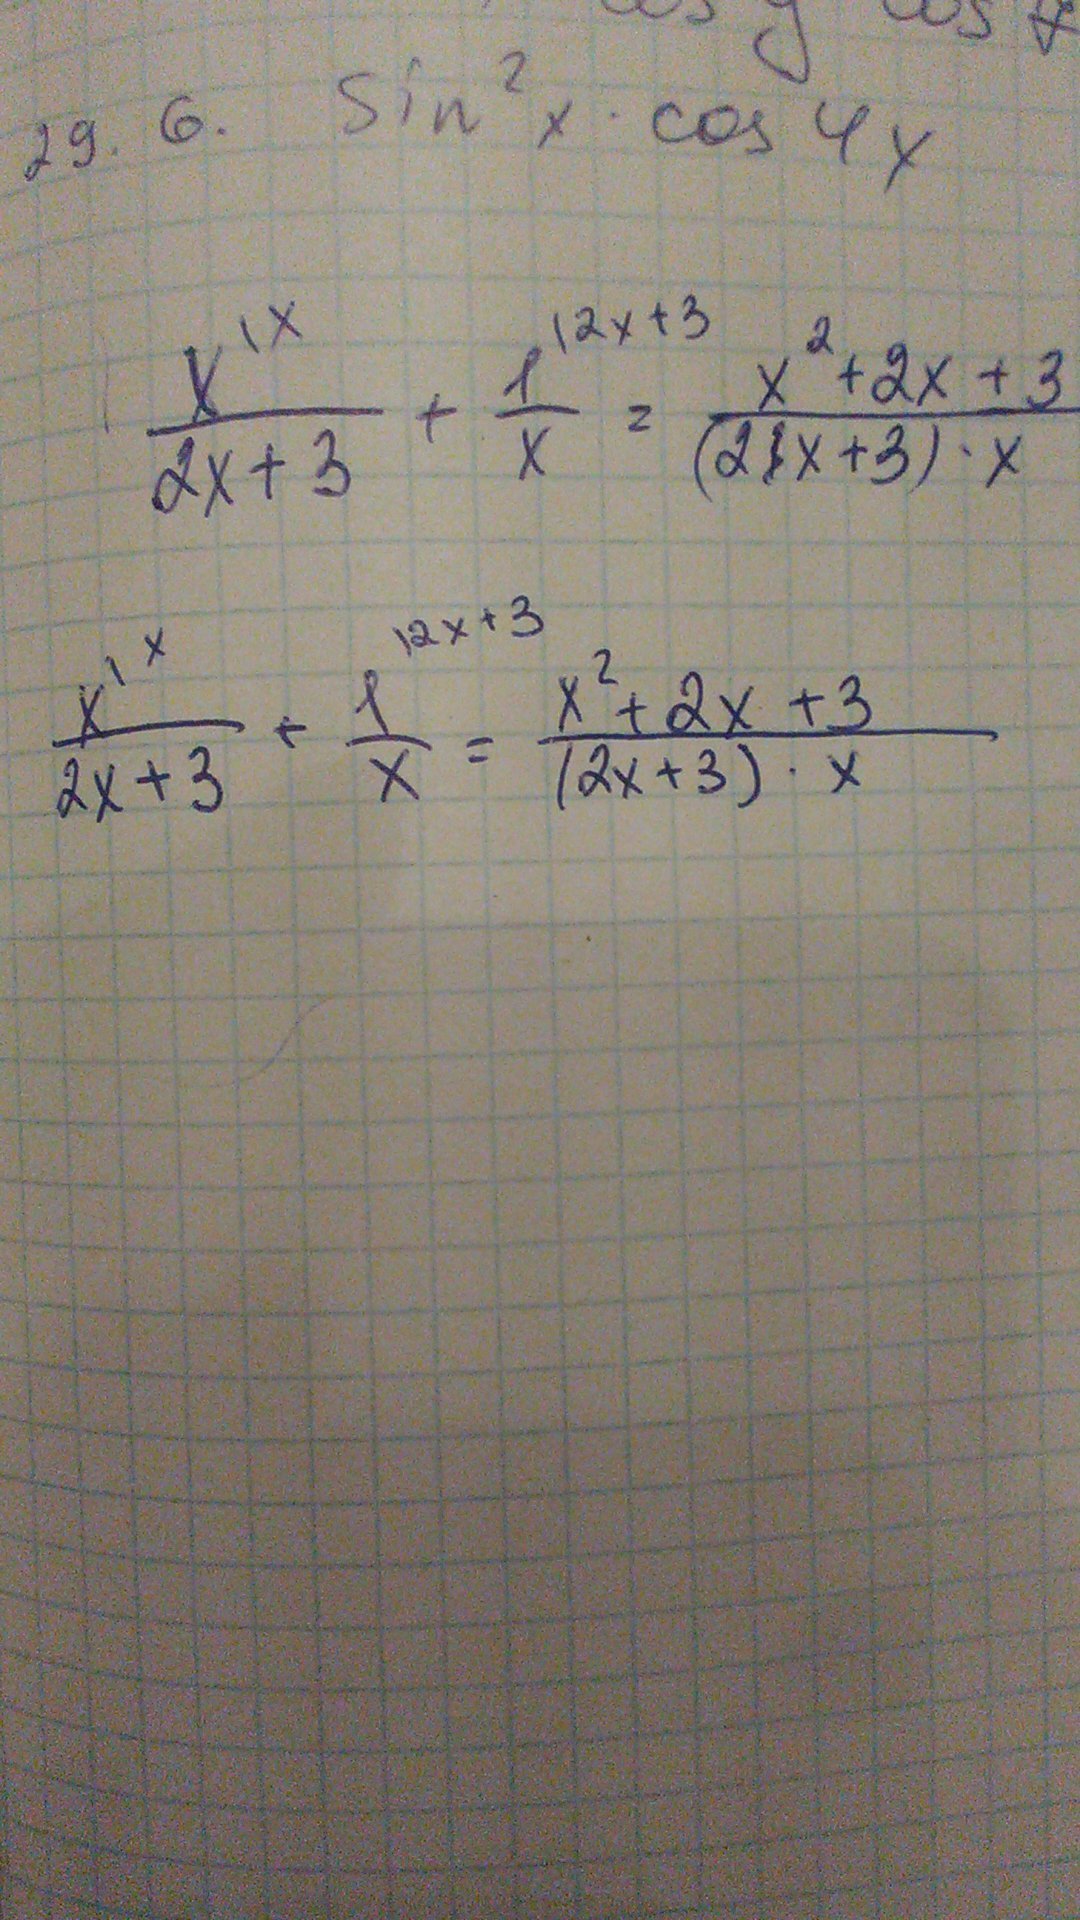 cos y cos
29. 6. sin² x · cos 4x
x^{\x}/(2x+3) + 1^{\2x+3}/x = (x²+2x+3)/((2x+3)·x)
x^{\x}/(2x+3) + 1^{\2x+3}/x = (x²+2x+3)/((2x+3)·x)